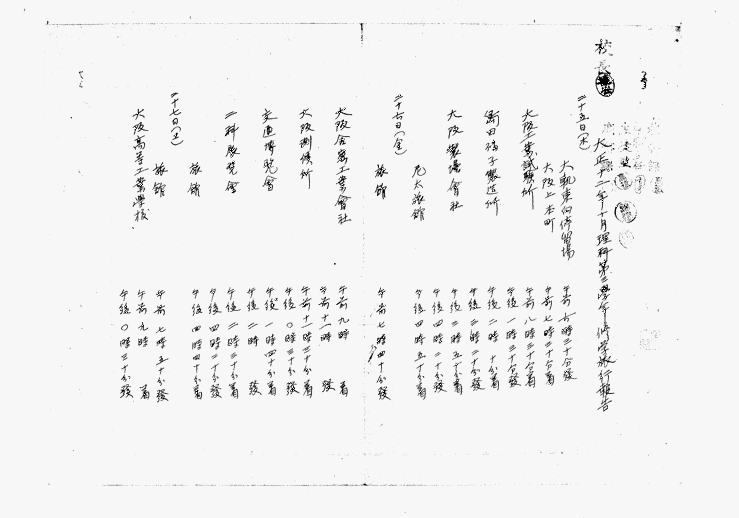 校長
大正十二年十月理科第三學年修學旅行報告
二十五日(木)
大軌東向停留場 午前六時三十分發
大阪上本町 午前七時三十分着
大阪工業試驗所 午前八時三十分着
午後一時三十分發
島田硝子製造所 午後二時十分着
午後三時二十分發
大阪製煉會社 午後三時五十分着
午後四時二十分發
旅館 午後四時五十分着
二十六日(金)
旅館 午前七時四十分發
大阪合密工業會社 午前九時 着
午前十一時 發
大阪測候所 午前十一時三十分着
午後〇時三十分發
交通博覽會 午後一時四十分着
午後二時 發
二科展覽會 午後二時三十分着
午後四時二十分發
旅館 午後四時四十分着
二十七日(土)
旅館 午前七時五十分發
大阪高等工業學校 午前九時 着
午後〇時三十分發